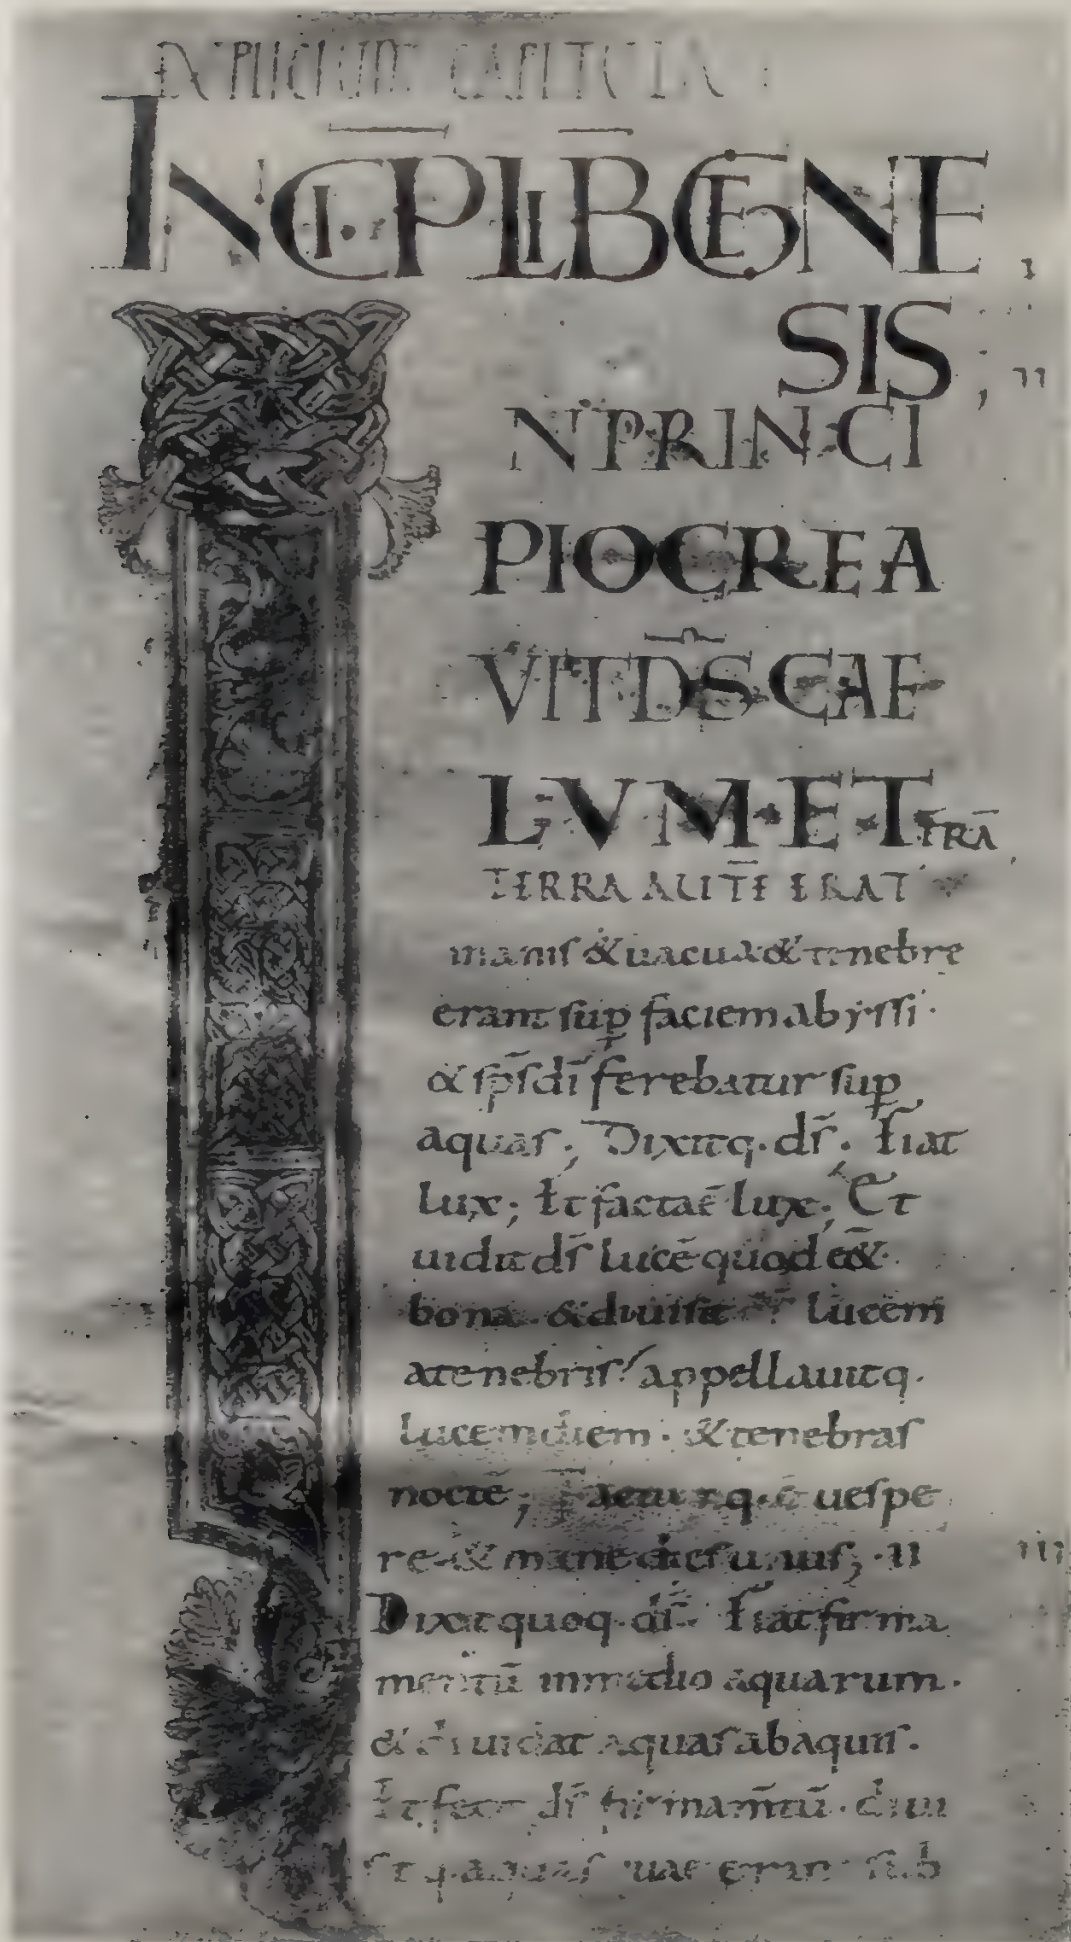 EXPLICIUNT CAPITULA
INCIP̄ LIB̄ GENE
SIS ;
N PRINCI
PIO CREA
VIT D̄S CAE
LVM · ET TRĀ
TERRA AUTE̅ ERAT
inanis & uacua & tenebre
erant sup faciem abyssi ·
& sp̄s dī ferebatur sup
aquas ; Dixitq · ds̄ · Fiat
lux ; Et facta ē lux ; Et
uidit ds̄ lucē quod eēt
bona · & diuisit lucem
a tenebris appellauitq ·
lucem diem · & tenebras
noctē ; Factumq · ē uespe
re · & mane dies unus ; · II
Dixit quoq · ds̄ · Fiat firma
mentū in medio aquarum ·
& diuidat aquas ab aquis ·
Et fecit ds̄ firmam̄tū · diui
sitq · aquas quae erant sub
I
II
III